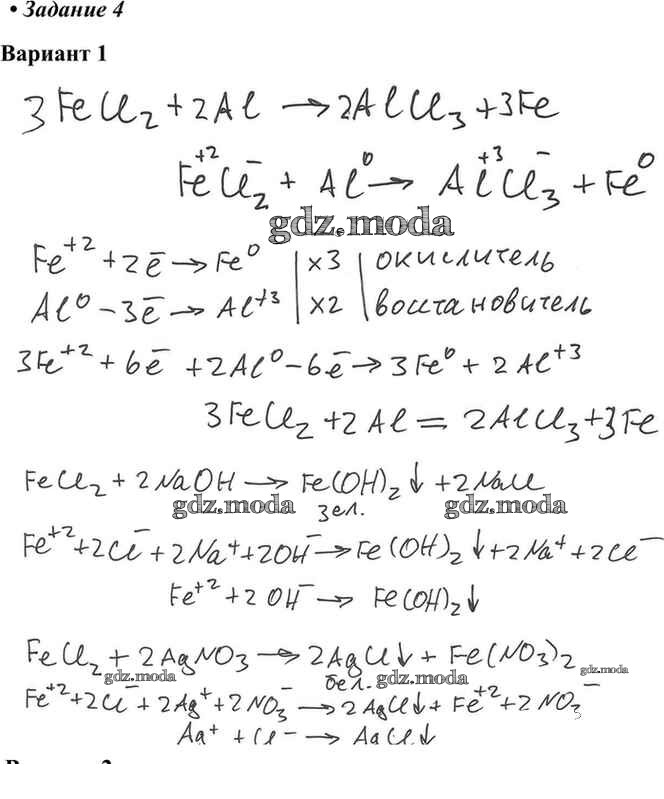 • Задание 4
Вариант 1
3FeCl₂ + 2Al → 2AlCl₃ + 3Fe
Fe⁺²Cl₂⁻ + Al⁰ → Al⁺³Cl₃⁻ + Fe⁰
gdz.moda
Fe⁺² + 2ē → Fe⁰ | ×3 | окислитель
Al⁰ − 3ē → Al⁺³ | ×2 | восстановитель
3Fe⁺² + 6ē + 2Al⁰ − 6ē → 3Fe⁰ + 2Al⁺³
3FeCl₂ + 2Al = 2AlCl₃ + 3Fe
FeCl₂ + 2NaOH → Fe(OH)₂↓ + 2NaCl
gdz.moda зел. gdz.moda
Fe⁺² + 2Cl⁻ + 2Na⁺ + 2OH⁻ → Fe(OH)₂↓ + 2Na⁺ + 2Cl⁻
Fe⁺² + 2OH⁻ → Fe(OH)₂↓
FeCl₂ + 2AgNO₃ → 2AgCl↓ + Fe(NO₃)₂
gdz.moda бел. gdz.moda gdz.moda
Fe⁺² + 2Cl⁻ + 2Ag⁺ + 2NO₃⁻ → 2AgCl↓ + Fe⁺² + 2NO₃⁻
Ag⁺ + Cl⁻ → AgCl↓